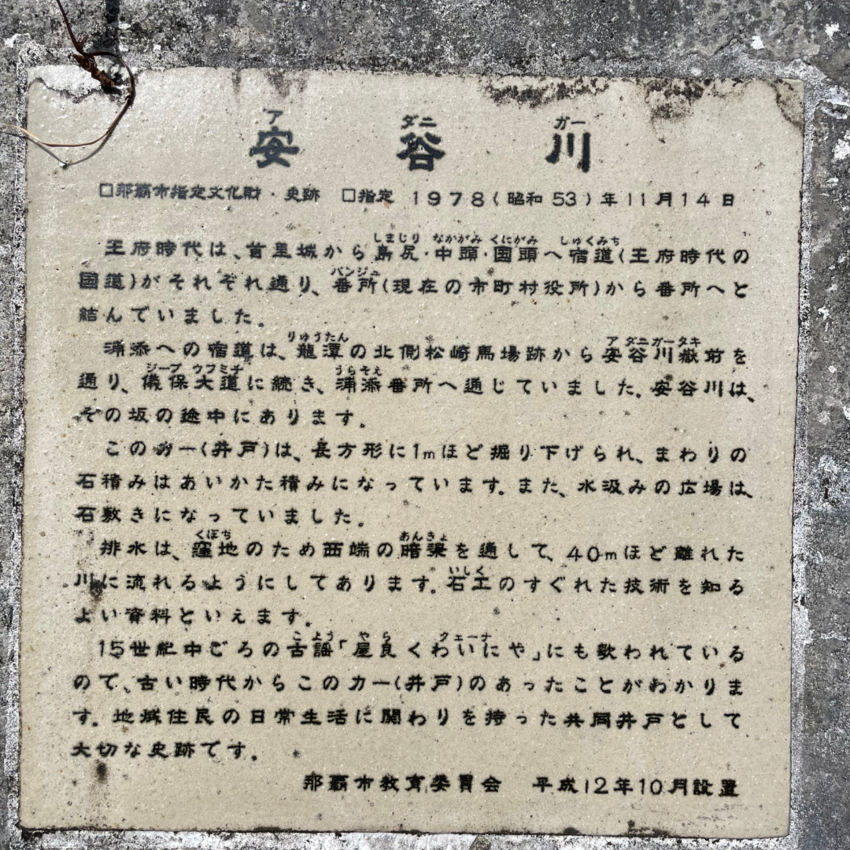 安谷川
□那覇市指定文化財・史跡　□指定　1978(昭和53)年11月14日
王府時代は、首里城から島尻・中頭・国頭へ宿道(王府時代の
国道)がそれぞれ通り、番所(現在の市町村役所)から番所へと
結んでいました。
浦添への宿道は、龍潭の北側松崎馬場跡から安谷川嶽前を
通り、儀保大道に続き、浦添番所へ通じていました。安谷川は、
その坂の途中にあります。
このカー(井戸)は、長方形に1mほど掘り下げられ、まわりの
石積みはあいかた積みになっています。また、水汲みの広場は、
石敷きになっていました。
排水は、窪地のため西端の暗渠を通して、40mほど離れた
川に流れるようにしてあります。石工のすぐれた技術を知る
よい資料といえます。
15世紀中ごろの古謡「屋良くわいにや」にも歌われている
ので、古い時代からこのカー(井戸)のあったことがわかりま
す。地域住民の日常生活に関わりを持った共同井戸として
大切な史跡です。
那覇市教育委員会　平成12年10月設置